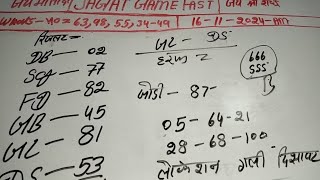 JAGAT GAME FAST
NO = 63, 98, 55, 34-49 16-11-2024
DB - 02
77
FD - 82
GB - 45
GL - 81
DS - 53
GL - DS
666
555
जोडी - 87-
05-64-21
28-68-100
लोकेशन गली दिसावर